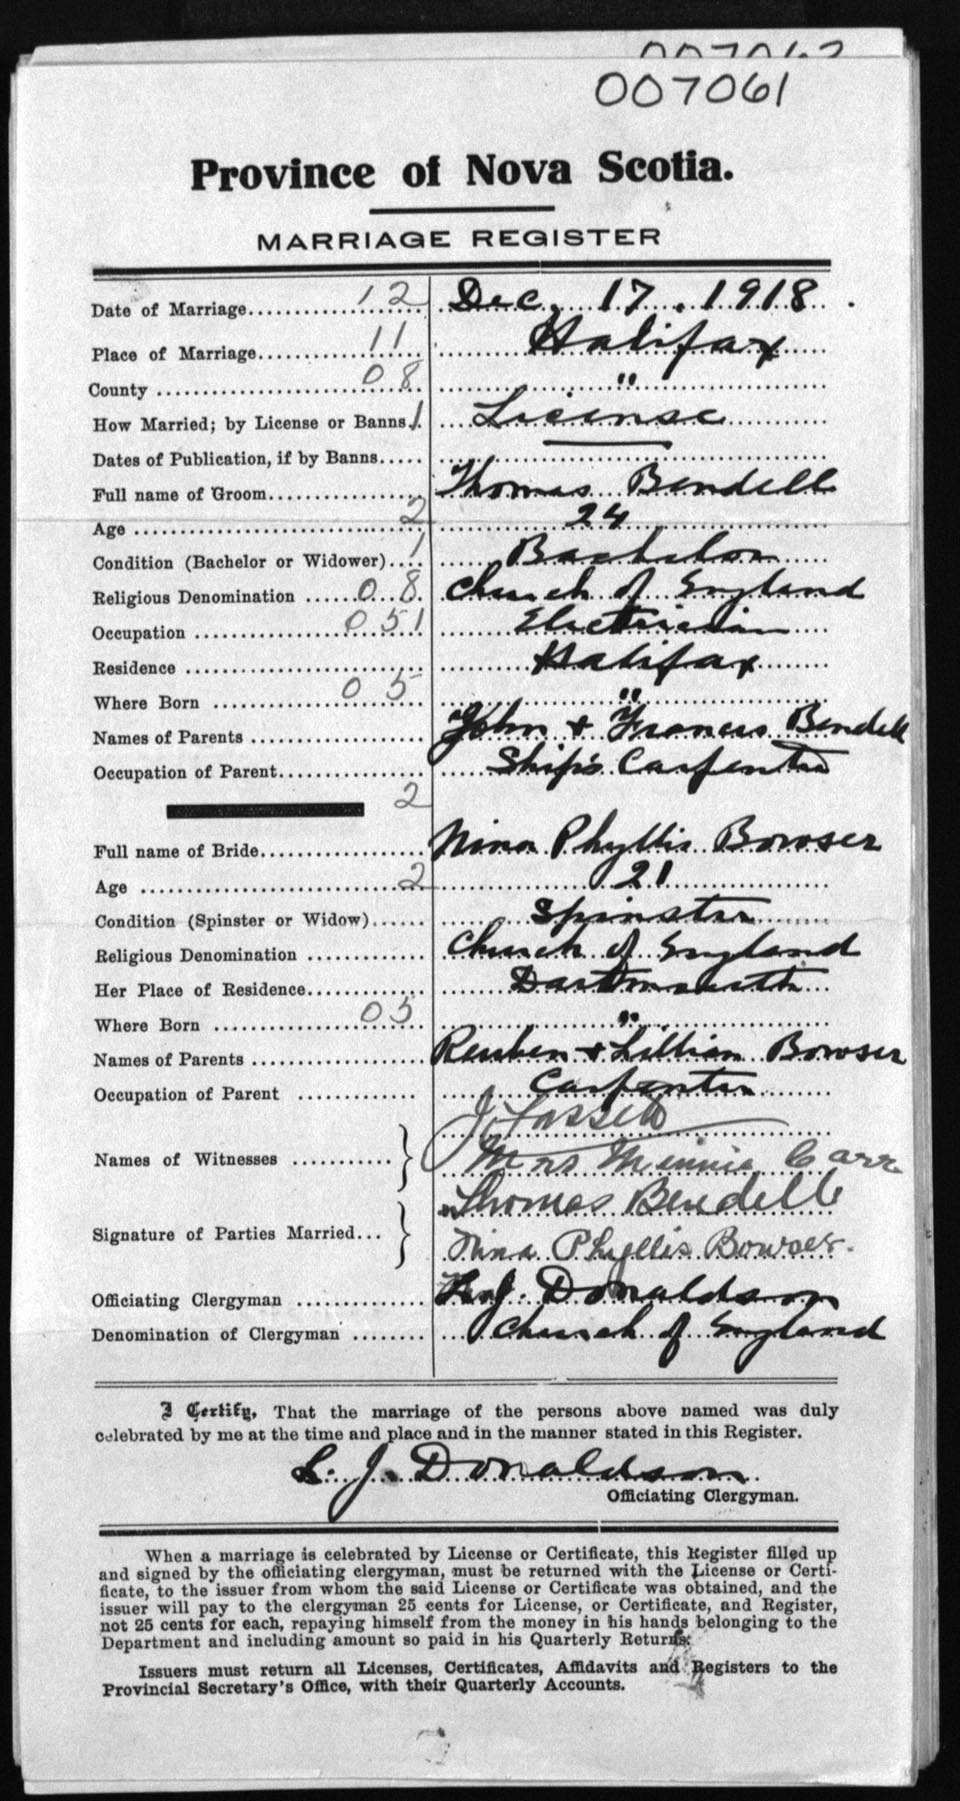 007061
Province of Nova Scotia.
MARRIAGE REGISTER
Date of Marriage 12 Dec. 17. 1918.
Place of Marriage 11 Halifax
County 08 "
How Married; by License or Banns 1 License
Dates of Publication, if by Banns
Full name of Groom Thomas Bendell
Age 2 24
Condition (Bachelor or Widower) 1 Bachelor
Religious Denomination 08 Church of England
Occupation 051 Electrician
Residence Halifax
Where Born 05 "
Names of Parents John + Frances Bendell
Occupation of Parent Ship's Carpenter
2
Full name of Bride Nina Phyllis Bowser
Age 2 21
Condition (Spinster or Widow) Spinster
Religious Denomination Church of England
Her Place of Residence Dartmouth
Where Born 05 "
Names of Parents Reuben + Lillian Bowser
Occupation of Parent Carpenter
J.
Names of Witnesses Mrs Minnie Carr
Thomas Bendell
Signature of Parties Married... Nina Phyllis Bowser.
Officiating Clergyman J. Donaldson
Denomination of Clergyman Church of England
I Certify, That the marriage of the persons above named was duly
celebrated by me at the time and place and in the manner stated in this Register.
L. J. Donaldson
Officiating Clergyman.
When a marriage is celebrated by License or Certificate, this Register filled up
and signed by the officiating clergyman, must be returned with the License or Certi-
ficate, to the issuer from whom the said License or Certificate was obtained, and the
issuer will pay to the clergyman 25 cents for License, or Certificate, and Register,
not 25 cents for each, repaying himself from the money in his hands belonging to the
Department and including amount so paid in his Quarterly Returns.
Issuers must return all Licenses, Certificates, Affidavits and Registers to the
Provincial Secretary's Office, with their Quarterly Accounts.